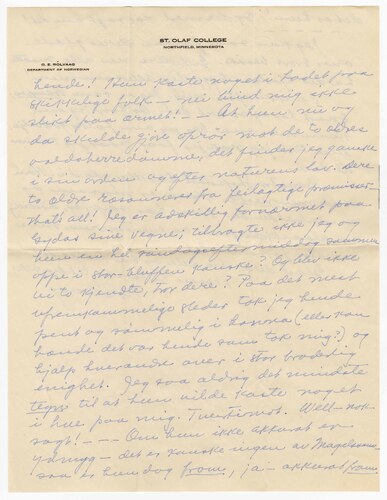 ST. OLAF COLLEGE
NORTHFIELD, MINNESOTA
O. E. RÖLVAAG
DEPARTMENT OF NORWEGIAN
hende! Hun kaste noget i hodet paa
skikkelige folk — nei bind mig ikke
slikt paa ærmet! — — At hun nu og
da skulde gjøre oprør mot de to ældres
, det finder jeg ganske
i sin orden og efter naturens lov. Dere
to ældre ræsonnerer fra feilagtige præmisser
thats all! Jeg er adskillig fornærmet paa
Gydas sine vegne; tilbragte ikke jeg og
hun en hel søndagseftermiddag sammen
oppe i stor-bluffen kanske? Og blev ikke
vi to kjendte, tror dere? Paa det mest
steder tok jeg hende
pent og sømmelig i haanden (eller kan
hænde det var hende som tok mig?) og
hjalp hverandre over i stor broderlig
enighet. Jeg saa aldrig det mindste
tegn til at hun vilde kaste noget
i hue paa mig. Tvertimot. Well-nok-
sagt! — — — Om hun ikke akkurat er
— det er kanske ingen av
saa er hun dog from, ja — akkurat from